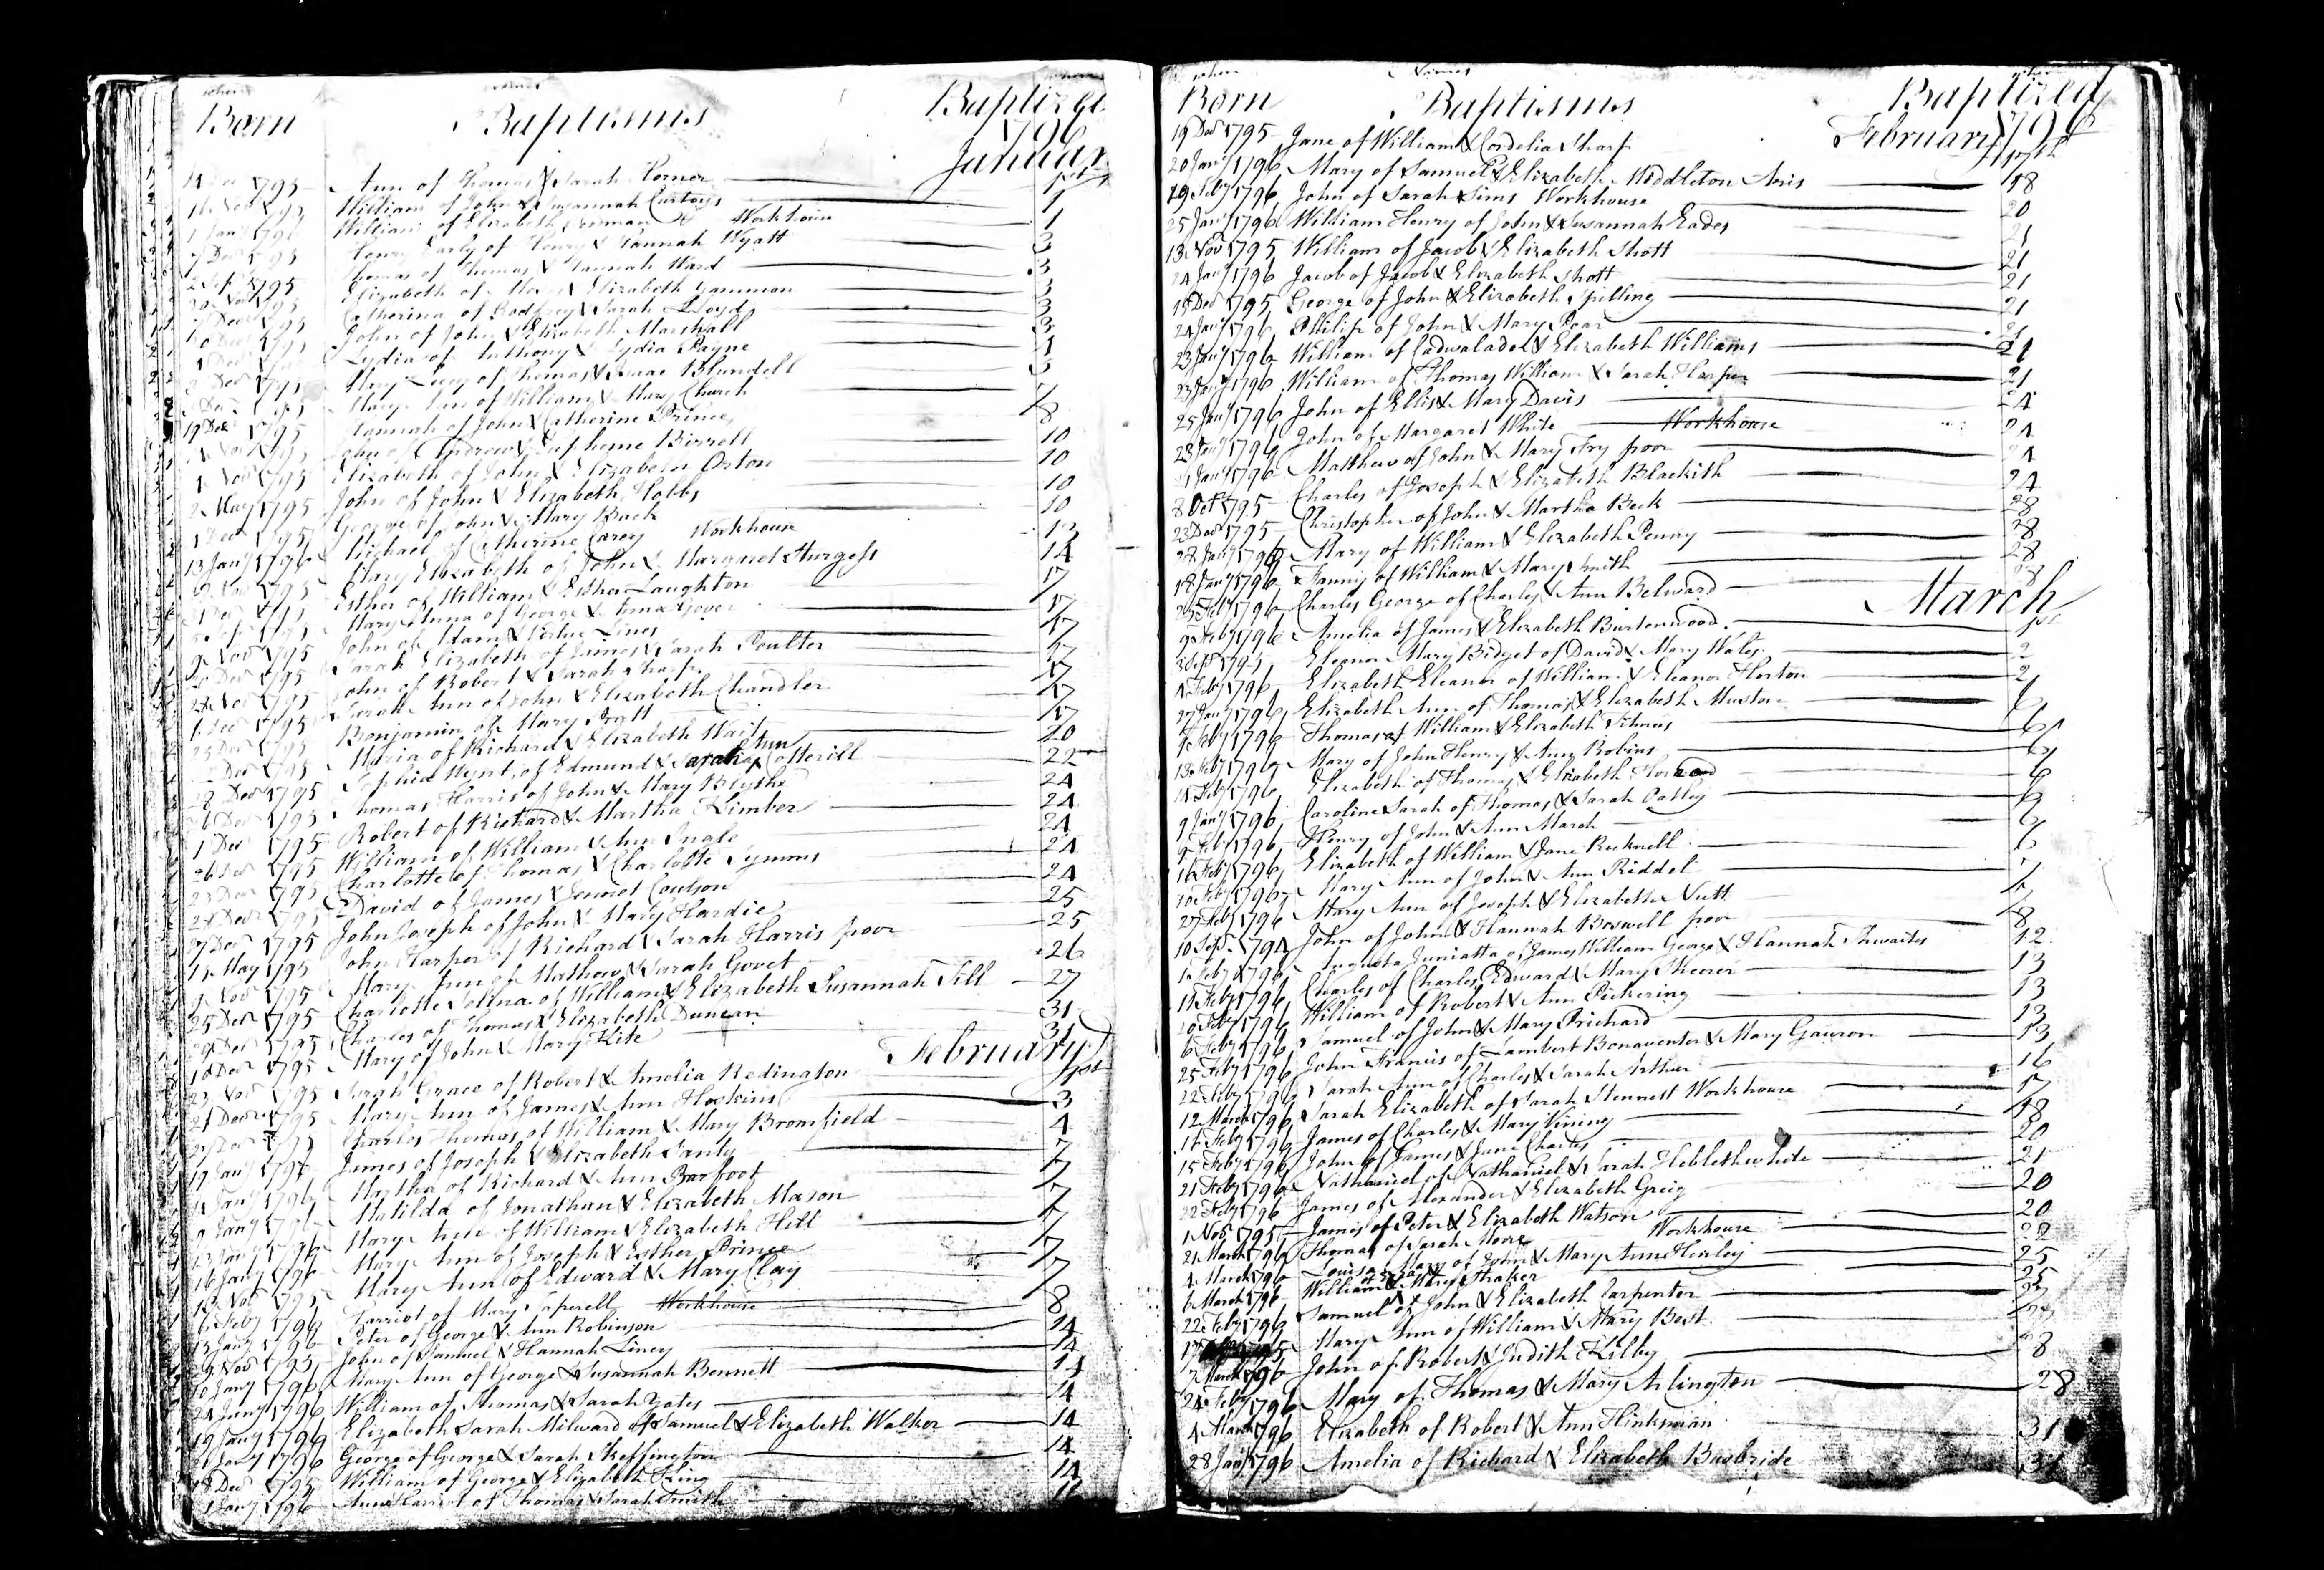 Born Baptisms Baptized
1796
January
1795 Ann of Thomas & Sarah Horner 1st
William of John & Susannah Curtoys 1
1 Jany 1796 William of Elizabeth Workhouse 1
Dec 1795 Henry Early of Henry & Hannah Wyatt 3
1795 Thomas of Thomas & Hannah Ward 3
Nov 1795 Elizabeth of & Elizabeth Gammon 3
Dec 1795 Catherina of Godfrey & Sarah Lloyd 3
Dec 1795 John of John & Elizabeth Marshall 3
Dec Lydia of Anthony & Lydia Payne
Dec 1795 Mary Lucy of Thomas & Blundell
Mary Ann of William & Mary Church 7
19 Dec 1795 Hannah of John & Catherine Prince 8
Nov 1795 John of Andrew & Eupheme Birrell 10
1 Nov 1795 Elizabeth of John & Elizabeth Orton 10
2 May 1795 John of John & Elizabeth Hobbs 10
Dec 1795 George of John & Mary Back 10
13 Jany 1796 Michael of Catherine Carey Workhouse 13
Nov 1795 Mary Elizabeth of John & Margaret Sturgess 14
Dec 1795 Esther of William & Esther Laughton 17
1795 Mary Anna of George & Gover 17
Nov 1795 John of Adam & Lines 17
Dec 1795 Sarah Elizabeth of James & Sarah Poulter 17
Nov 1795 John of Robert & Sarah Sharp 17
Dec 1795 Sarah Ann of John & Elizabeth Chandler 17
25 Dec 1795 Benjamin of Mary Pratt 17
Dec 1795 Maria of Richard & Elizabeth Wait 20
29 Dec 1795 Sophia of Edmund & Sarah Ann Cotterill 22
26 Dec 1795 Thomas Harris of John & Mary Blythe 24
1 Dec 1795 Robert of Richard & Martha Kimber 24
26 Dec 1795 William of William & Ann Ingle 24
23 Dec 1795 Charlotte of Thomas & Charlotte Symons 24
28 Dec 1795 David of James & Jennet Coulson 24
27 Dec 1795 John Joseph of John & Mary Hardie 25
15 May 1795 John Harper of Richard & Sarah Harris poor 25
9 Nov 1795 Mary Ann of Mathew & Sarah Govet 26
25 Dec 1795 Charlotte Selina of William & Elizabeth Susannah Till 27
29 Dec 1795 Charles of Thomas & Elizabeth Duncan 31
18 Dec 1795 Mary of John & Mary Kite 31
February
23 Nov 1795 Sarah Grace of Robert & Amelia Redington 1st
21 Dec 1795 Mary Ann of James & Ann Hoskins 3
Dec Charles Thomas of William & Mary Bromfield 4
19 Jany 1796 James of Joseph & Elizabeth Santy 7
Jany 1796 Martha of Richard & Ann Barfoot 7
9 Jany 1796 Matilda of Jonathan & Elizabeth Mason 7
13 Jany 1796 Mary Ann of William & Elizabeth Hill 7
16 Jany 1796 Mary Ann of Joseph & Esther Prince 7
Nov 1795 Mary Ann of Edward & Mary Clay 7
6 Feby 1796 Harriot of Mary Saperell Workhouse 8
13 Jany 1796 Peter of George & Ann Robinson 14
9 Nov 1795 John of Samuel & Hannah Liney 14
10 Jany 1796 Mary Ann of George & Susannah Bennett 14
24 Jany 1796 William of Thomas & Sarah Yates 14
19 Jany 1796 Elizabeth Sarah Milward of Samuel & Elizabeth Walker 14
Jany 1796 George of George & Sarah Skeffington 14
18 Dec 1795 William of George & Elizabeth King 14
1 Jany 1796 of Thomas & Sarah Smith
Born Baptisms Baptized
February 1796
19 Dec 1795 Jane of William & Cordelia Sharp 17th
20 Jany 1796 Mary of Samuel & Elizabeth Middleton Avis 18
19 Feby 1796 John of Sarah Sims Workhouse 20
25 Jany 1796 William Henry of John & Susannah Eades 21
13 Nov 1795 William of Jacob & Elizabeth Shott 21
24 Jany 1796 Jacob of Jacob & Elizabeth Shott 21
15 Dec 1795 George of John & Elizabeth Spilling 21
24 Jany 1796 Phillip of John & Mary Pear 21
23 Jany 1796 William of Cadwalader & Elizabeth Williams 21
23 Jany 1796 William of Thomas William & Sarah Harper 21
25 Jany 1796 John of Ellis & Mary Davis 24
23 Jany 1796 John of Margaret White Workhouse 24
Jany 1796 Matthew of John & Mary Fry poor 24
8 Oct 1795 Charles of Joseph & Elizabeth Blackith 24
23 Dec 1795 Christopher of John & Martha Beck 28
28 Jany 1796 Mary of William & Elizabeth Penny 28
18 Jany 1796 Fanny of William & Mary Smith 28
Feby 1796 Charles George of Charles & Ann Belward 28
March
9 Feby 1796 Amelia of James & Elizabeth Burtonwood 1st
Sept Eleonor Mary Bidget of David & Mary Wales 2
4 Feby 1796 Elizabeth Eleanor of William & Eleanor Horton 2
27 Jany 1796 Elizabeth Ann of Thomas & Elizabeth Muston 6
Feby 1796 Thomas of William & Elizabeth 6
13 Feby 1796 Mary of John Henry & Ann Robins 6
14 Feby 1796 Elizabeth of Thomas & Elizabeth 6
9 Jany 1796 Caroline Sarah of Thomas & Sarah Oatley 6
9 Feby 1796 Henry of John & Ann March 6
16 Feby 1796 Elizabeth of William & Jane Bucknell 6
10 Feby 1796 Mary Ann of John & Ann Riddel 7
27 Feby 1796 Mary Ann of Joseph & Elizabeth Nutt 7
10 Sept 1794 John of John & Hannah Boswell poor 8
Feby 1796 Augusta Juniatta of James William George & Hannah Thwaites 12
11 Feby 1796 Charles of Charles Edward & Mary Sheerer 13
10 Feby 1796 William of Robert & Ann Pickering 13
6 Feby 1796 Samuel of John & Mary Prichard 13
25 Feby 1796 John Francis of Lambert Bonaventer & Mary Gawron 13
22 Feby 1796 Sarah Ann of Charles & Sarah Arthur 16
12 March 1796 Sarah Elizabeth of Sarah Stennett Workhouse 17
14 Feby 1796 James of Charles & Mary Vining 18
15 Feby 1796 John of James & Jane Charles 20
21 Feby 1796 Nathaniel of Nathaniel & Sarah Heblethwhite 21
22 Feby 1796 James of Alexander & Elizabeth Greig 20
1 Nov 1795 James of Peter & Elizabeth Watson 20
21 March 1796 Thomas of Sarah Moore Workhouse 22
4 March 1796 Louisa Mary of John & Mary Anne Henley 25
6 March 1796 William of & Mary Straker 25
22 Feby 1796 Samuel of John & Elizabeth Carpenter 27
17 Mary Ann of William & Mary Best 27
7 March 1796 John of Robert & Judith Kilby 8
24 Feby 1796 Mary of Thomas & Mary Arlington 28
4 March 1796 Elizabeth of Robert & Ann Hinksman 31
28 Jany 1796 Amelia of Richard & Elizabeth Basbride 31